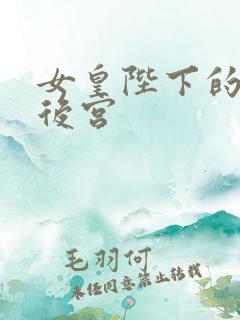 女皇陛下的
後宫
毛羽何
未经同意禁止转载